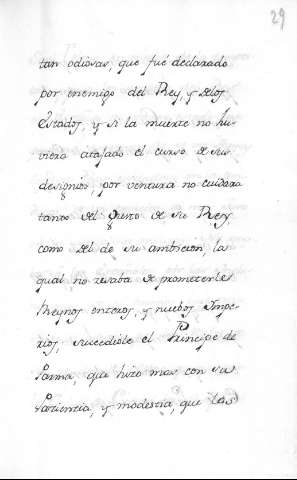 29
tan odiosas, que fué declarado
por enemigo del Rey, y delos
Estados, y si la muerte no hu-
viera atajado el curso de sus
designios, por ventura no cuidara
tanto del gusto de su Rey,
como del de su ambicion, la
qual no cesaba de prometerle
Reynos enteros, y nuebos Impe-
rios, sucediole el Principe de
Parma, que hizo mas con su
Paciencia, y modestia, que los